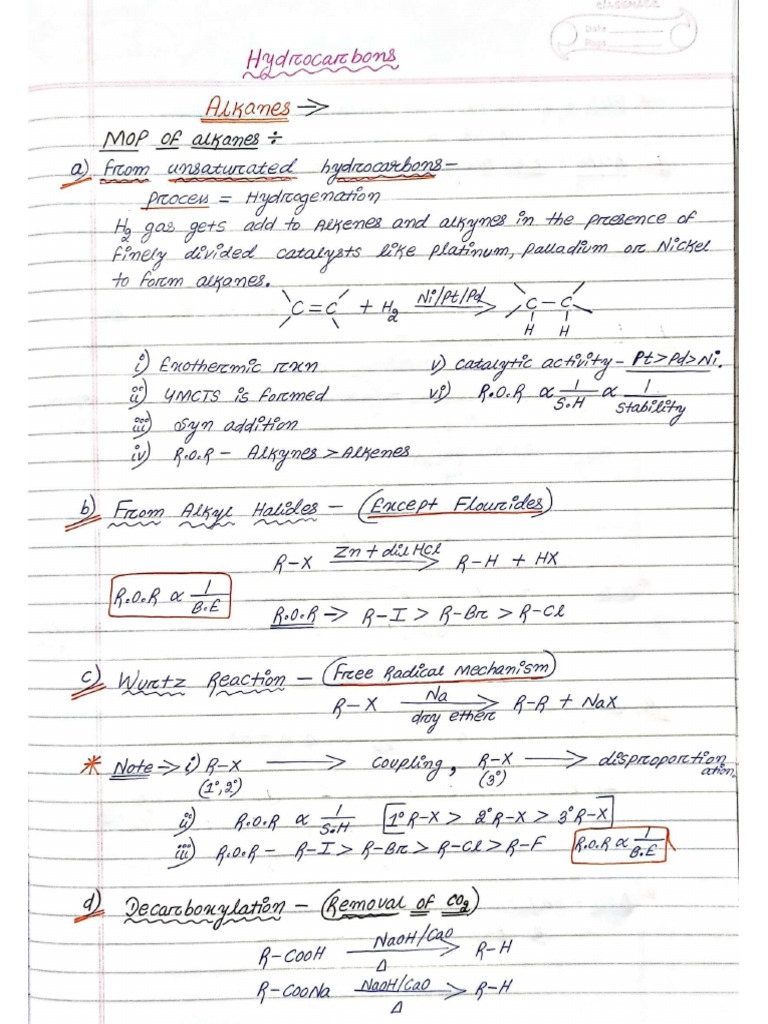 classmate
Date
Page
Hydrocarbons
Alkanes →
MOP of alkanes ÷
a) From unsaturated hydrocarbons-
Process = Hydrogenation
H2 gas gets add to Alkenes and alkynes in the presence of
finely divided catalysts like platinum, palladium or Nickel
to form alkanes.
C=C + H2 Ni/Pt/Pd → C-C
H H
i) Exothermic rxn v) catalytic activity- Pt>Pd>Ni.
ii) 4MCTS is formed vi) R.O.R ∝ 1/S.H ∝ 1/stability
iii) Syn addition
iv) R.O.R - Alkynes > Alkenes
b) From Alkyl Halides - (Except Flourides)
R-X Zn + dil HCl → R-H + HX
R.O.R ∝ 1/B.E
R.O.R → R-I > R-Br > R-Cl
c) Wurtz Reaction - (Free Radical mechanism)
R-X Na → R-R + NaX
dry ether
* Note → i) R-X → coupling, R-X → disproportion
(1°, 2°) (3°) ation.
ii) R.O.R ∝ 1/S.H 1° R-X > 2° R-X > 3° R-X
iii) R.O.R - R-I > R-Br > R-Cl > R-F R.O.R ∝ 1/B.E
d) Decarboxylation - (Removal of CO2)
R-COOH NaOH/CaO → R-H
Δ
R-COONa NaOH/CaO → R-H
Δ